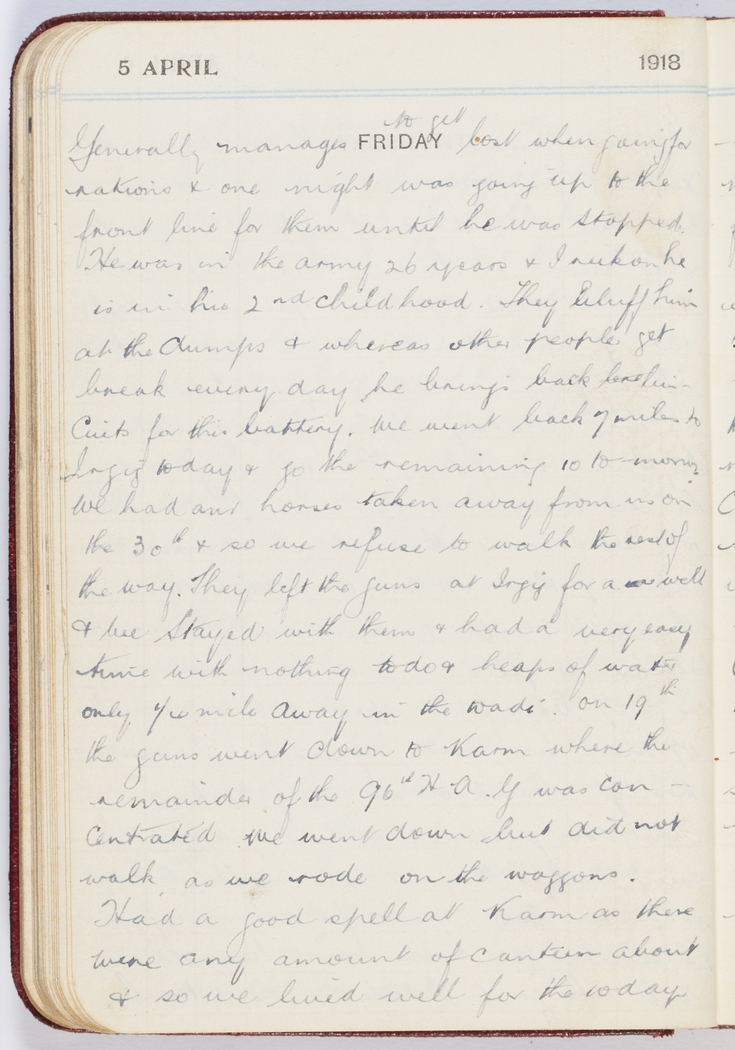 5 APRIL 1918
FRIDAY
to get
Generally manages lost when going for
rations & one night was going up to the
front line for them until he was stopped.
He was in the army 26 years & I reckon he
is in his 2nd childhood. They bluff him
at the dumps & whereas other people get
break every day he brings back
cuits for this battery. We went back 7 miles to
Irgig today & go the remaining 10 to-morrow
We had our horses taken away from us on
the 30th & so we refuse to walk the rest of
the way. They left the guns at Irgig for a well
& we stayed with them & had a very easy
time with nothing to do & heaps of water
only mile away in the wadi. On 19th
the guns went down to Karm where the
remainder of the 96th H.A.G was con-
centrated we went down but did not
walk, as we rode on the waggons.
Had a good spell at Karm as there
were any amount of canteen about
& so we lived well for the today